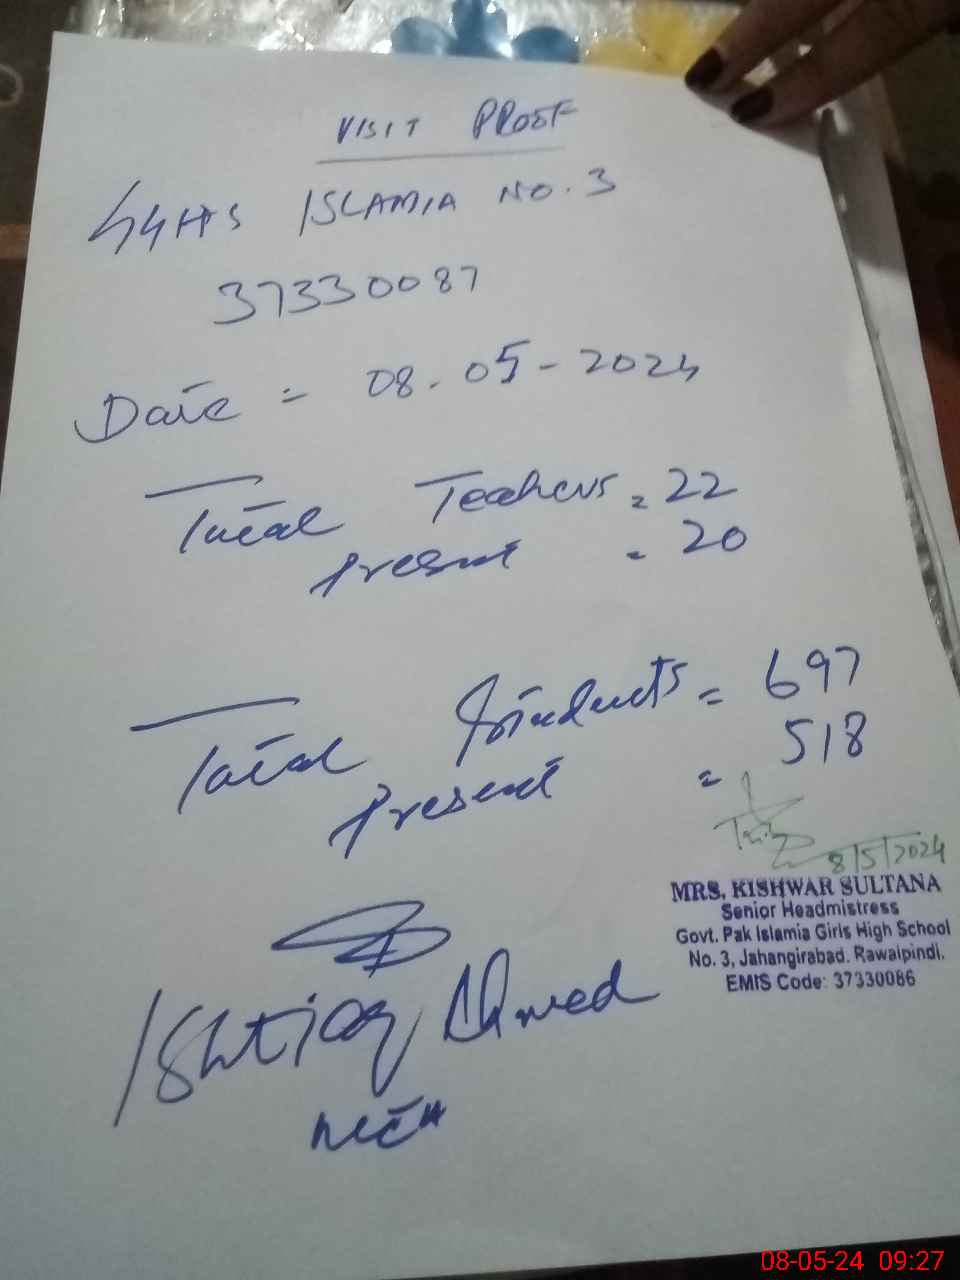 VISIT PROOF
GGHS ISLAMIA NO. 3
37330087
Date = 08-05-2024
Total Teachers = 22
Present = 20
Total Students = 697
Present = 518
8/5/2024
MRS. KISHWAR SULTANA
Senior Headmistress
Govt. Pak Islamia Girls High School
No. 3, Jahangirabad. Rawalpindi.
EMIS Code: 37330086
Ishtiaq Ahmed
08-05-24 09:27